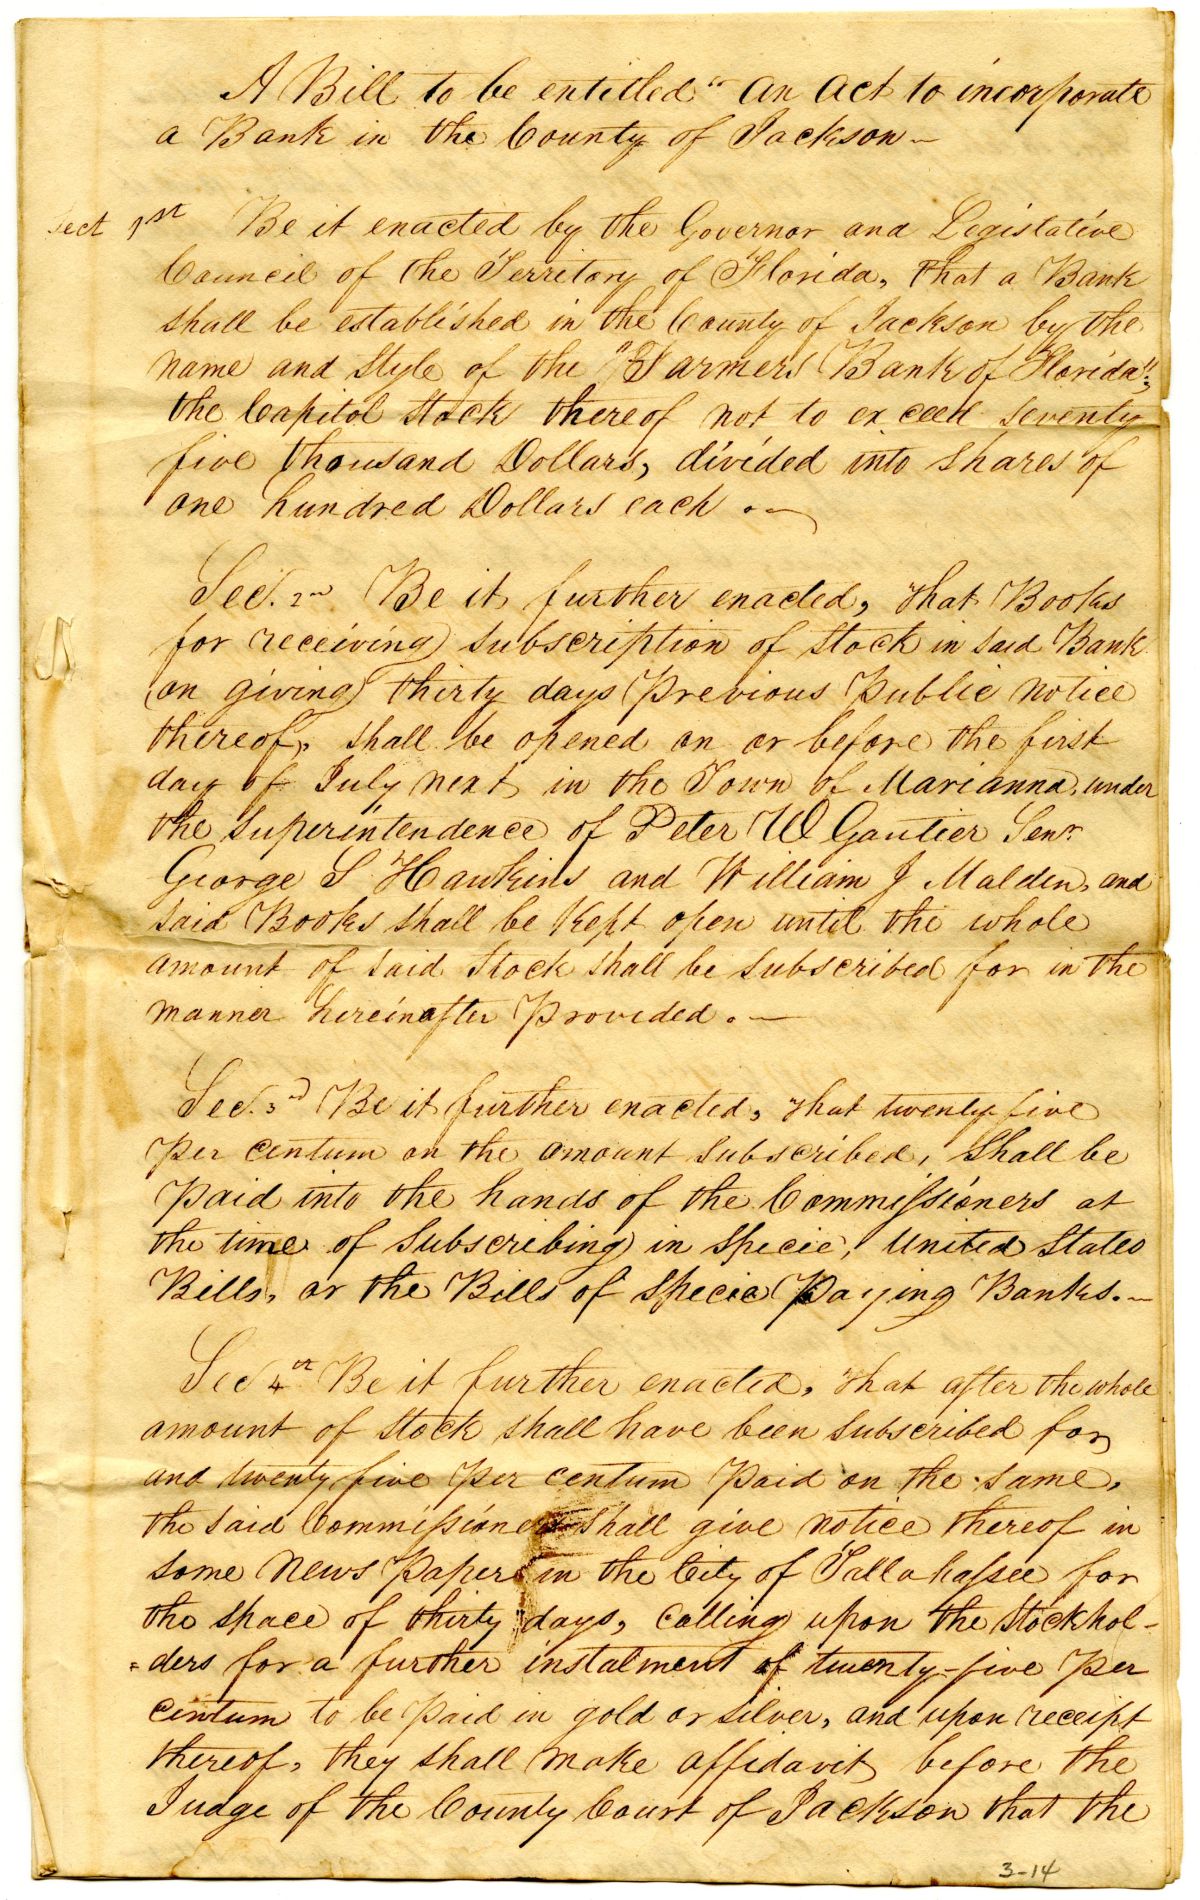 A Bill to be entitled "An Act to incorporate
a Bank in the County of Jackson—
Sect 1st Be it enacted by the Governor and Legislative
Council of the Territory of Florida, That a Bank
shall be established in the County of Jackson by the
name and Style of the "Farmers Bank of Florida";
the Capitol Stock thereof not to exceed seventy
five thousand Dollars, divided into Shares of
one hundred Dollars each.—
Sec. 2nd Be it further enacted, that Books
for receiving subscription of Stock in said Bank
on giving thirty days Previous Public notice
thereof, shall be opened on or before the first
day of July next in the Town of Marianna, under
the Superintendence of Peter W Gautier Senr.
George S Hawkins and William J Malden, and
said Books shall be Kept open until the whole
amount of said Stock shall be subscribed for in the
manner hereinafter Provided.—
Sec. 3d Be it further enacted, that twenty five
Per centum on the amount subscribed, Shall be
Paid into the hands of the Commissioners at
the time of subscribing in Specie, United States
Bills, or the Bills of Specie Paying Banks.—
Sec 4th Be it further enacted, that after the whole
amount of Stock shall have been subscribed for
and twenty five Per centum Paid on the same,
the said Commissioners shall give notice thereof in
some News Paper in the City of Tallahassee for
the space of thirty days, calling upon the Stockhol-
=ders for a further instalment of twenty-five Per
centum to be Paid in gold or silver, and upon receipt
thereof, they shall make affidavit before the
Judge of the County Court of Jackson that the
3-14